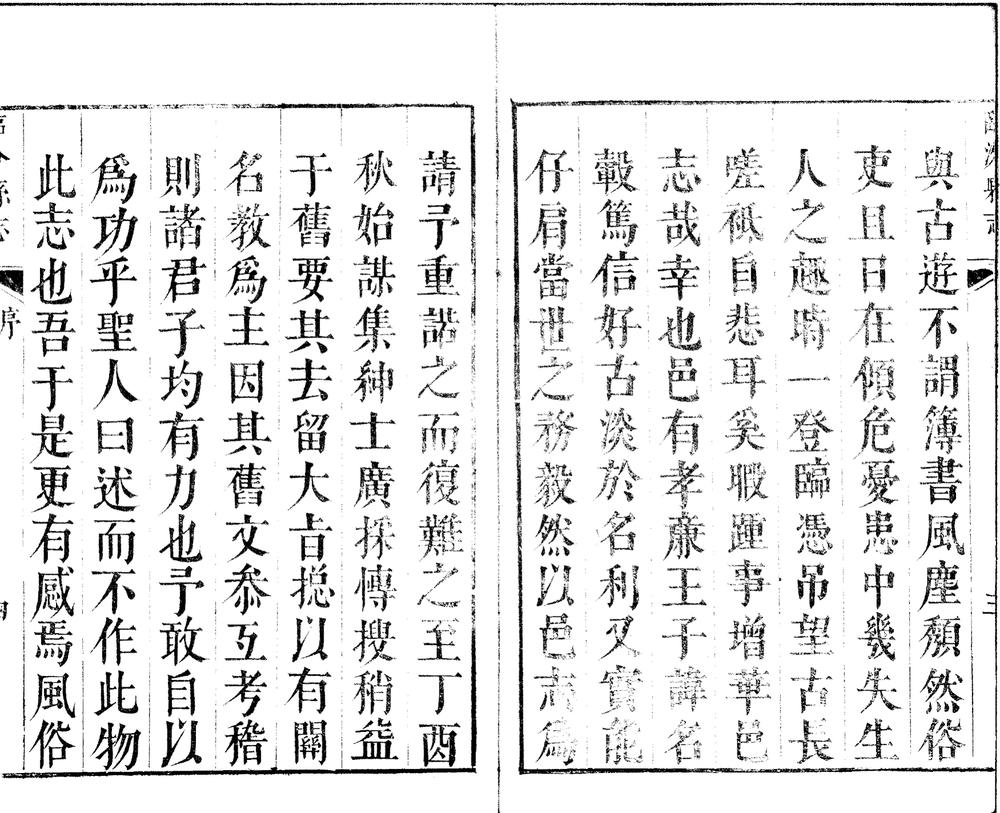 與古遊不謂簿書風塵頹然俗
吏且日在傾危憂患中幾失生
人之趣時一登臨憑吊望古長
嗟祗自悲耳奚暇踵事增華邑
志哉幸也邑有孝亷王子諱名
轂篤信好古淡於名利又實能
仔肩當世之務毅然以邑志爲
請予重諾之而復難之至丁酉
秋始謀集紳士廣採慱搜稍益
于舊要其去留大㫖揔以有關
名教爲主因其舊文叅互考稽
則諸君子均有力也予敢自以
爲功乎聖人曰述而不作此物
此志也吾于是更有感焉風俗
縣志
序
三
四